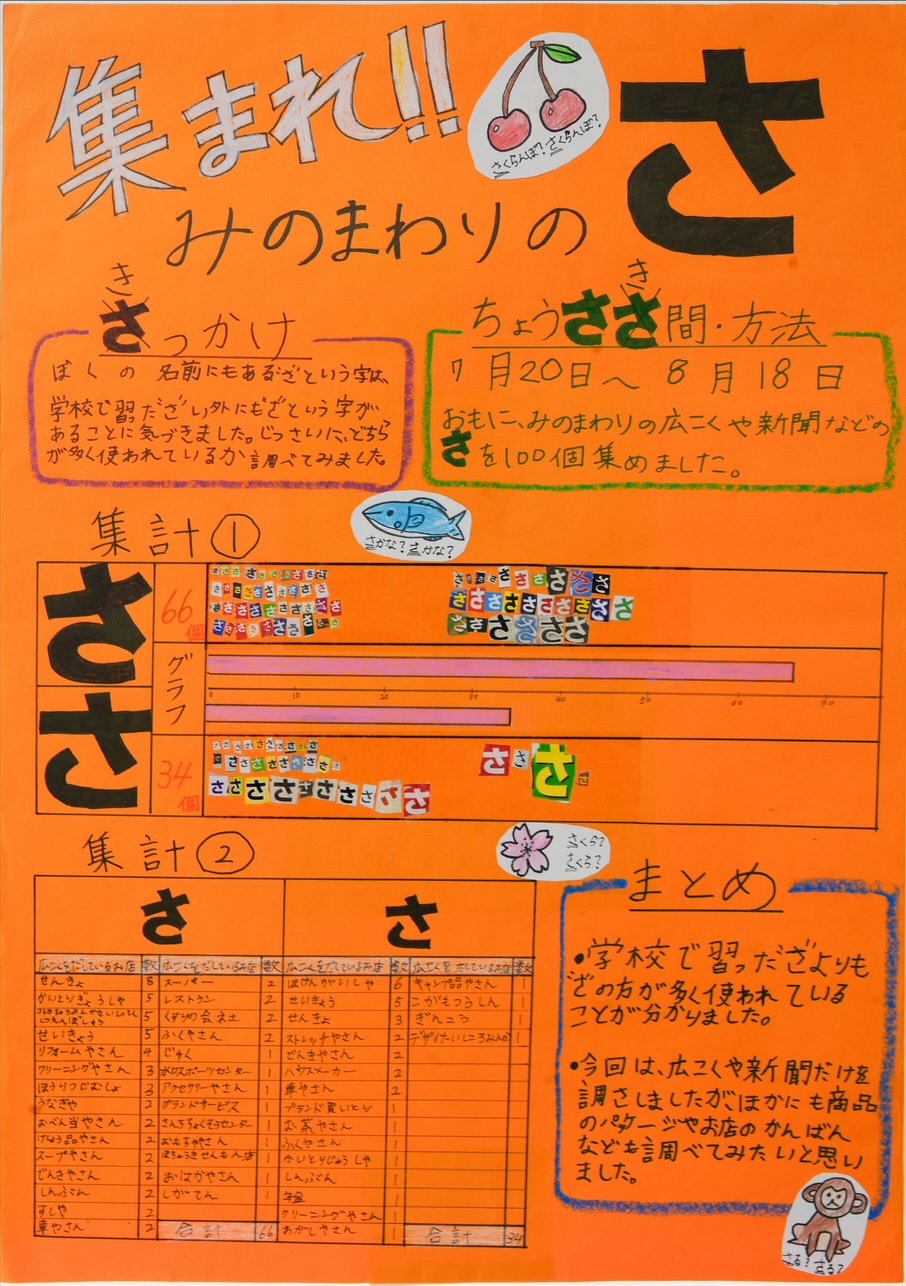 集まれ!!
さくらんぼ?さくらんぼ?
さ
みのまわりの
きっかけ
ぼくの名前にもある さ という字は、
学校で習った さ い外にも さ という字が
あることに気づきました。じっさいに、どちら
が多く使われているか調べてみました。
ちょうさき間・方法
7月20日〜8月18日
おもに、みのまわりの広こくや新聞などの
さを100個集めました。
集計①
さかな?さかな?
さ
66個
グラフ
0 10 20 30 40 50 60 70
さ
34個
集計②
さくら?
さくら?
さ さ
広こくをだしているお店 数 広こくをだしているお店 数 広こくをだしているお店 数 広こくをだしているお店 数
せんきょ 8 スーパー 2 ほけんがいしゃ 6 キャンプ品やさん 1
5 レストラン 2 せいきょう 5 こがもつうしん 1
5 くすりの会社 2 せんきょ 3 ぎんこう 1
せいきょう 5 ふくやさん 2 ストレッチやさん 2
リフォームやさん 4 じゅく 1 でんきやさん 2
クリーニングやさん 3 水口スポーツセンター 1 ハウスメーカー 2
ほうりつじむしょ 3 アクセサリーやさん 1 車やさん 2
うなぎや 2 グランドサービス 1 ブランド買いとり 1
おべん当やさん 2 1 お茶やさん 1
けしょう品やさん 2 おもちゃやさん 1 ふくやさん 1
スープやさん 2 1 かいとりじょうしゃ 1
でんきやさん 2 おはかやさん 1 しんぶん 1
しんぶん 2 しかてん 1 年金 1
すしや 2 クリーニングやさん 1
車やさん 2 合計 66 おかしやさん 1 合計 34
まとめ
•学校で習った さ よりも
さ の方が多く使われている
ことが分かりました。
•今回は、広こくや新聞だけを
調さしましたが、ほかにも商品
のパッケージやお店のかんばん
なども調べてみたいと思い
ました。
さる?さる?